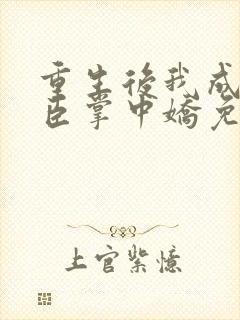 重生後我成
臣掌中嬌免
上官紫憶